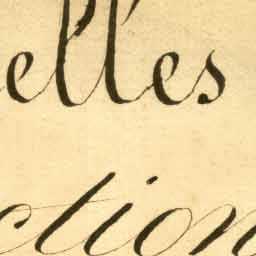 elles
ction